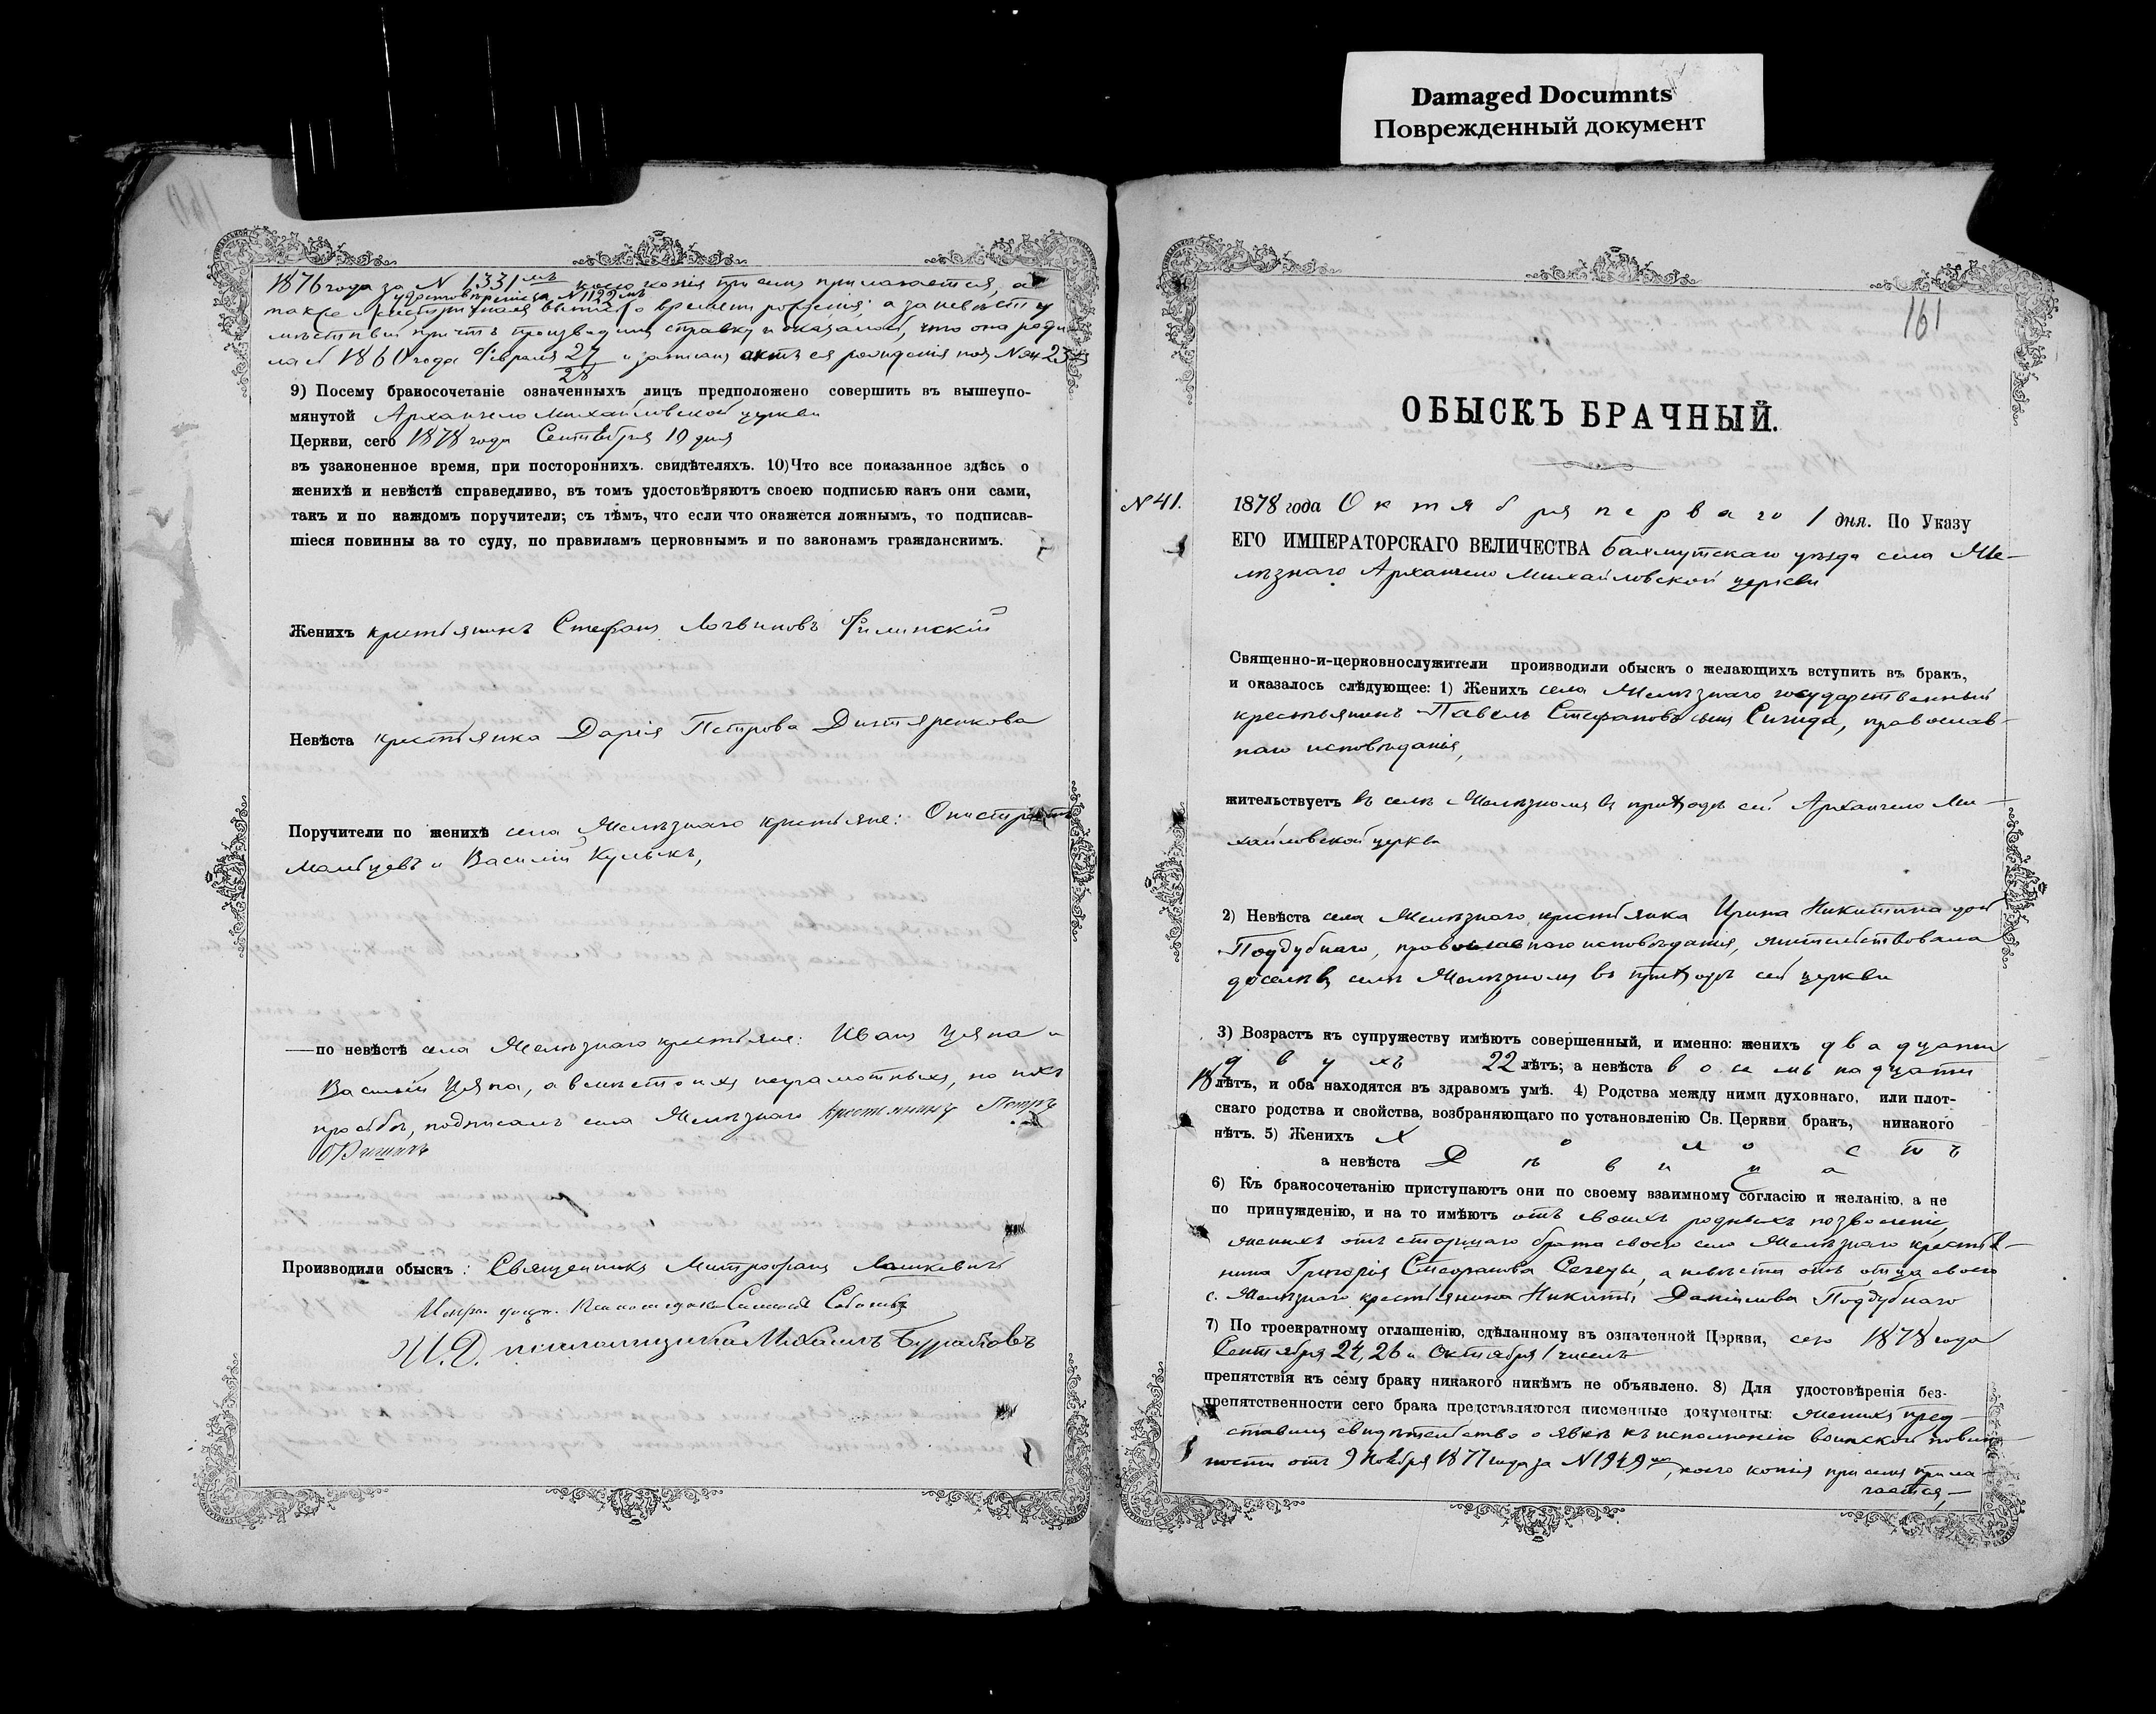 Damaged Documnts
Поврежденный документ
1876 года за N 1331 коего копія при семъ прилагается, а
N 1122
также выпись о времени рожденія; а за невѣсту
мѣстный причтъ произведши справку и оказалось, что она роди
лась 1860 года Февраля 27/28 и записанъ актъ ея рожденія подъ N 23
9) Посему бракосочетаніе означенныхъ лицъ предположено совершить въ вышеупо-
мянутой Архангело Михайловской церкви
Церкви, сего 1878 года Сентября 10 дня
въ узаконенное время, при постороннихъ. свидѣтеляхъ. 10) Что все показанное здѣсь о
женихѣ и невѣстѣ справедливо, въ томъ удостовѣряютъ своею подписью какъ они сами,
такъ и по каждомъ поручители; съ тѣмъ, что если что окажется ложнымъ, то подписав-
шіеся повинны за то суду, по правиламъ церковнымъ и по законамъ гражданскимъ.
Женихъ крестьянинъ Стефанъ Логвиновъ Филинскій
Невѣста крестьянка Дарія Петрова Дихтяренкова
Поручители по женихѣ села Желѣзнаго крестьяне:
и Василій Кулыкъ,
—по невѣстѣ села Желѣзнаго крестьяне: Иванъ Цяпа и
Василій Цяпа, а вмѣсто ихъ неграмотныхъ, по ихъ
просьбѣ, подписалъ села Желѣзнаго крестьянинъ Петръ
Производили обыскъ: Священникъ Митрофанъ Лашкевичъ
И.Д. псаломщика Михаилъ
161
ОБЫСКЪ БРАЧНЫЙ.
N 41.
1878 года Октября перваго 1 дня. По Указу
ЕГО ИМПЕРАТОРСКАГО ВЕЛИЧЕСТВА Бахмутскаго уѣзда села Же-
лѣзнаго Архангело Михайловской церкви
Священно-и-церковнослужители производили обыскъ о желающихъ вступить въ бракъ,
и оказалось слѣдующее: 1) Женихъ села Желѣзнаго государственный
крестьянинъ Павелъ Стефановъ сынъ Сигида, православ-
наго исповѣданія,
жительствуетъ въ селѣ Желѣзномъ въ приходѣ сей Архангело Ми-
хайловской церкви
2) Невѣста села Желѣзнаго крестьянка Ирина Никитина дочь
Поддубнаго, православнаго исповѣданія, жительствовала
доселѣ въ селѣ Желѣзномъ въ приходѣ сей церкви
3) Возрастъ къ супружеству имѣютъ совершенный, и именно: женихъ двадцати
двухъ 22 лѣтъ; а невѣста восемьнадцати
18 лѣтъ, и оба находятся въ здравомъ умѣ. 4) Родства между ними духовнаго, или плот-
скаго родства и свойства, возбраняющаго по установленію Св. Церкви бракъ, никакого
нѣтъ. 5) Женихъ Холостъ
а невѣста Дѣвица
6) Къ бракосочетанію приступаютъ они по своему взаимному согласію и желанію, а не
по принужденію, и на то имѣютъ отъ своихъ родныхъ позволеніе,
женихъ отъ старшаго брата своего села Желѣзнаго крестья-
нина Григорія Стефанова Сегеды, а невѣста отъ отца своего
с. Желѣзнаго крестьянина Никиты Данилова Поддубнаго
7) По троекратному оглашенію, сдѣланному въ означенной Церкви, сего 1878 года
Сентября 24, 26 и Октября 1 чиселъ
препятствія къ сему браку никакого никѣмъ не объявлено. 8) Для удостовѣренія без-
препятственности сего брака представляются письменные документы: женихъ пред-
ставилъ свидѣтельство о явкѣ къ исполненію воинской повин-
ности отъ 9 Ноября 1877 года за N 1949, коего копія при семъ прила-
гается,—